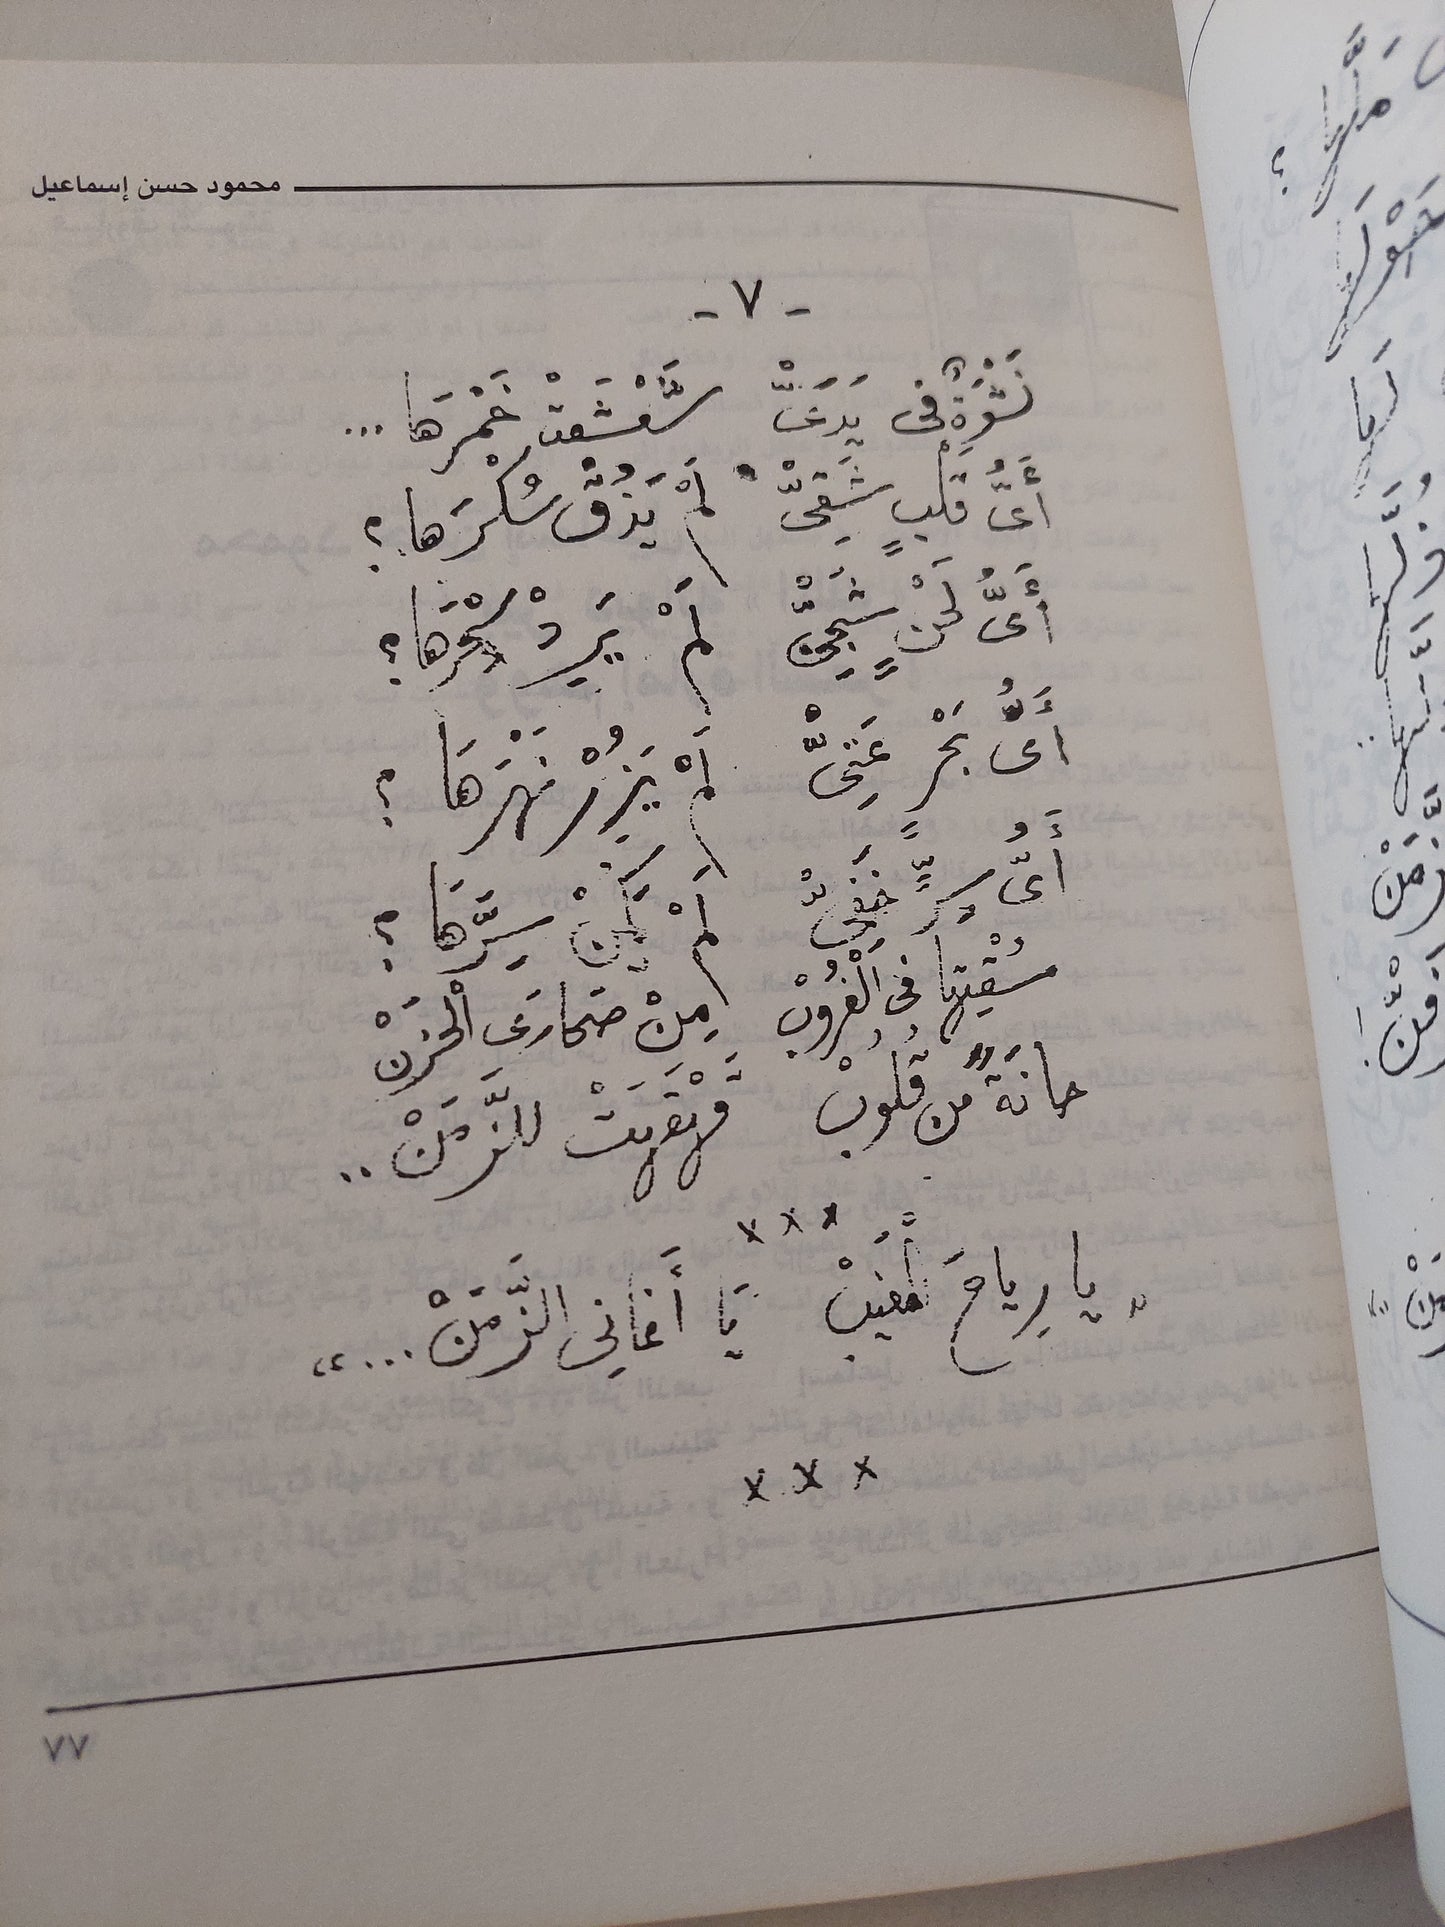 محمود حسن إسماعيل
- ٧ -
نَشْوَةٌ فى يَدَىَّ سَعْشَعَتْ خَمْرَها ...
أَىُّ قَلْبٍ شَقِىّْ لَمْ يَذُقْ سُكْرَها ؟
أَىُّ لَحْنٍ شَجِىّْ لَمْ يَرِدْ سِحْرَها ؟
أَىُّ بَحْرٍ عَتِىّْ لَمْ يَزُرْ نَهْرَهَا ؟
أَىُّ سِرٍّ خَفِىّْ لَمْ يَكُنْ سِرَّهَا ؟
سُقْيتها فى الْغُرُوبْ مِنْ صَحارَى الْحَزَنْ
حانَةً من قُلُوبْ قَهْقَهَتْ للزَّمَنْ ..
x x x
" يا رِياحَ الْمَغيبْ يَا أَغانِى الزَّمَنْ ... "
x x x
٧٧